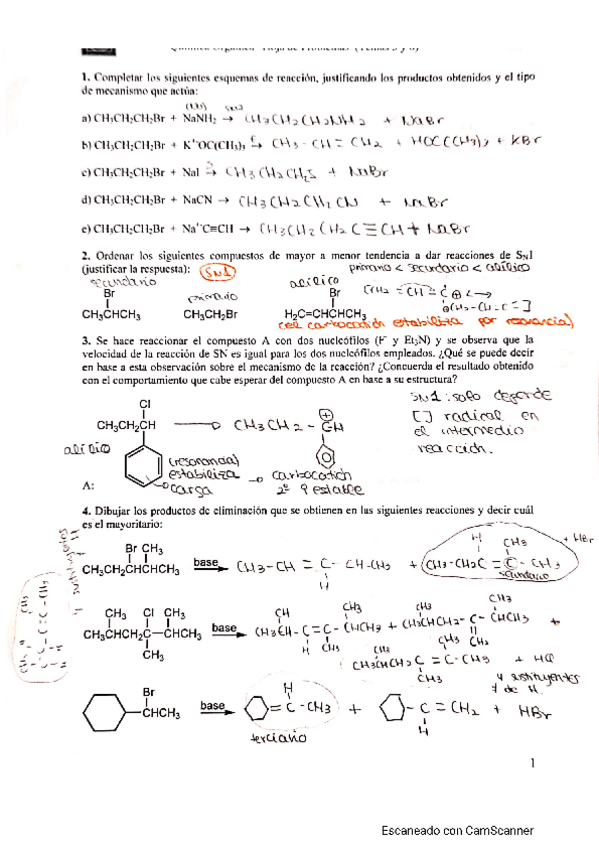 Química Orgánica Hoja de Problemas (Temas 5 y 6)
1. Completar los siguientes esquemas de reacción, justificando los productos obtenidos y el tipo
de mecanismo que actúa:
SN2
a) CH3CH2CH2Br + NaNH2 → CH3CH2CH2NH2 + NaBr
b) CH3CH2CH2Br + K+-OC(CH3)3 → CH3-CH=CH2 + HOC(CH3)3 + KBr
c) CH3CH2CH2Br + NaI → CH3CH2CH2I + NaBr
d) CH3CH2CH2Br + NaCN → CH3CH2CH2CN + NaBr
e) CH3CH2CH2Br + Na+-C≡CH → CH3CH2CH2C≡CH + NaBr
2. Ordenar los siguientes compuestos de mayor a menor tendencia a dar reacciones de SN1
(justificar la respuesta): SN1 primario < secundario < alílico
secundario primario alílico
Br Br
CH3CHCH3 CH3CH2Br H2C=CHCHCH3
(el carbocatión estabiliza por resonancia)
3. Se hace reaccionar el compuesto A con dos nucleófilos (F- y Et3N) y se observa que la
velocidad de la reacción de SN es igual para los dos nucleófilos empleados. ¿Qué se puede decir
en base a esta observación sobre el mecanismo de la reacción? ¿Concuerda el resultado obtenido
con el comportamiento que cabe esperar del compuesto A en base a su estructura?
SN1: solo depende
Cl [ ] radical en
CH3CH2CH → CH3CH2 - CH el intermedio
alílico reacción.
(resonancia)
estabiliza → carbocatión
A: carga 2º y estable
4. Dibujar los productos de eliminación que se obtienen en las siguientes reacciones y decir cuál
es el mayoritario:
Br CH3 H CH3 + HBr
CH3CH2CHCHCH3 base → CH3-CH=C-CH-CH3 + CH3-CH2C=C-CH3
H secundario
CH3 Cl CH3
CH3CHCH2C-CHCH3 base →
CH3
+ HCl
4 sustituyentes
≠ de H.
Br H
CHCH3 base → =C-CH3 + -C=CH2 + HBr
H
terciario
1
Escaneado con CamScanner